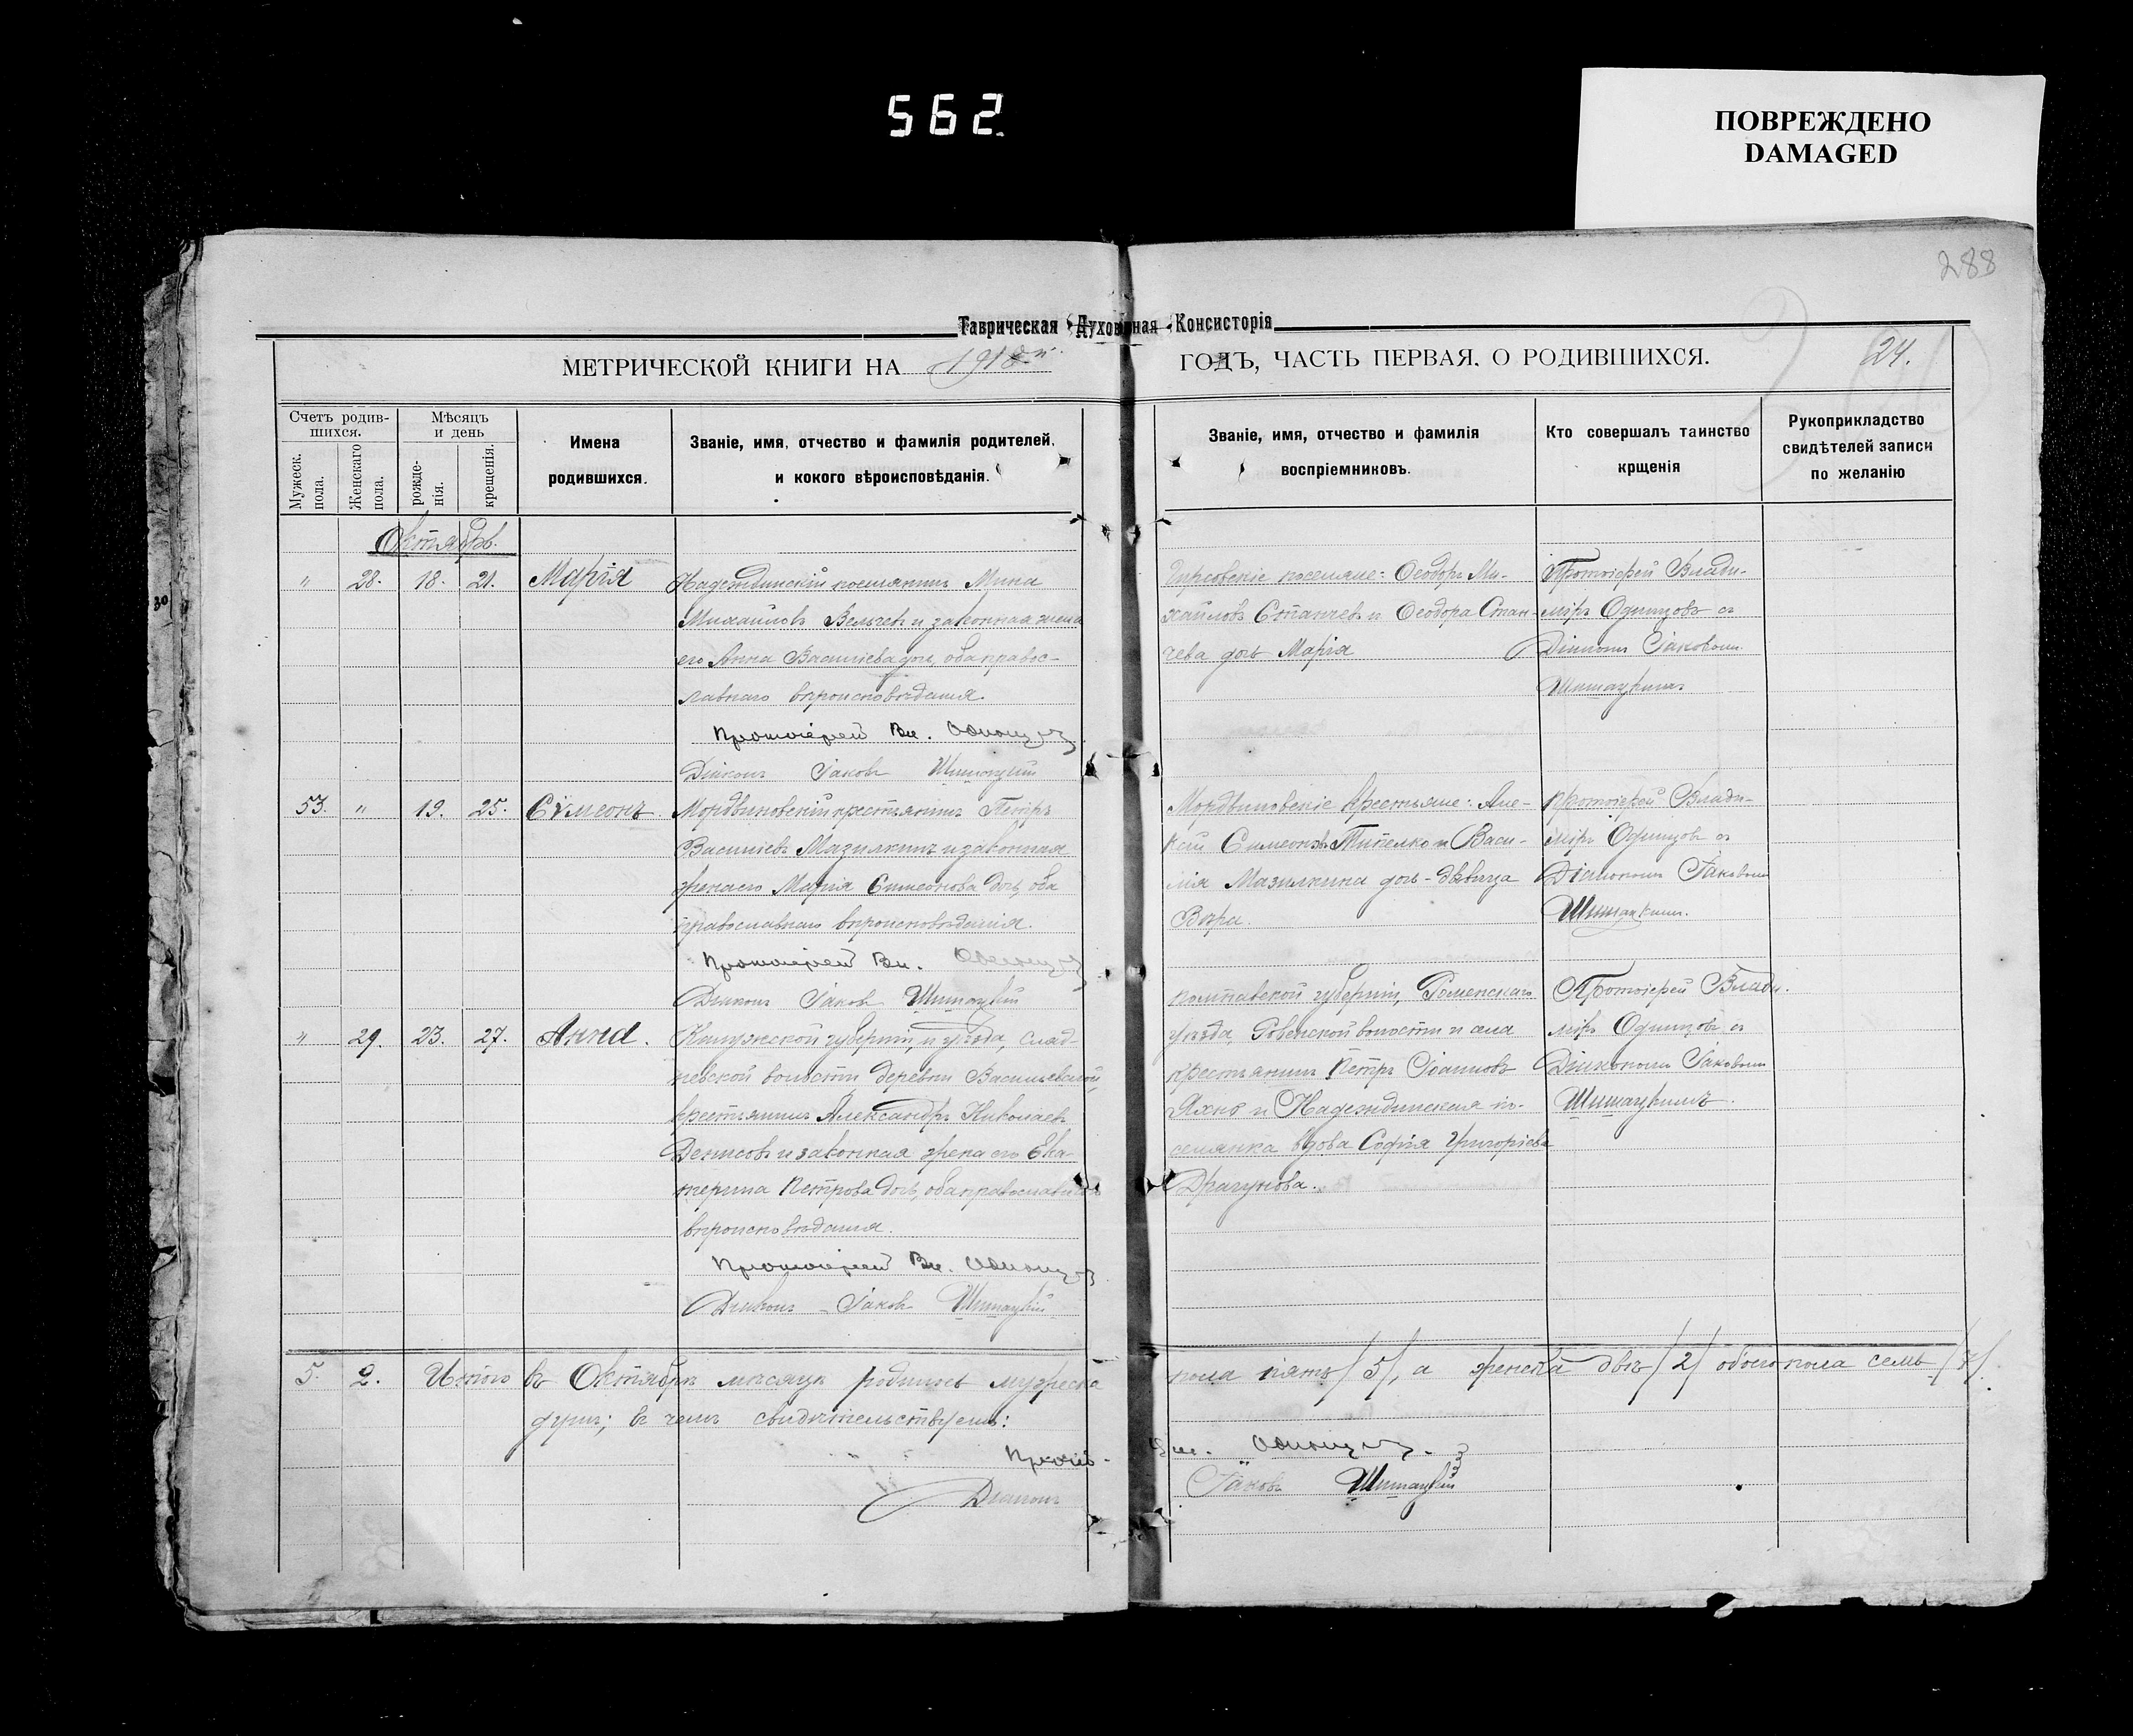 562
ПОВРЕЖДЕНО
DAMAGED
288
Таврическая Духовная Консисторія
МЕТРИЧЕСКОЙ КНИГИ НА 1918й
ГОДЪ, ЧАСТЬ ПЕРВАЯ. О РОДИВШИХСЯ.
24.
Счетъ родив-
шихся.
Мужеск.
пола.
Женскаго
пола.
Мѣсяцъ
и день
рожде-
нія.
крещенія.
Имена
родившихся.
Званіе, имя, отчество и фамилія родителей,
и кокого вѣроисповѣданія.
Званіе, имя, отчество и фамилія
воспріемниковъ.
Кто совершалъ таинство
крщенія
Рукоприкладство
свидѣтелей записи
по желанію
Октябрь.
" 28. 18. 21. Марія
Надеждинскій поселянинъ Мина
Михаиловъ Вельчевъ и законная жена
его Анна Василіева дочь, оба правос-
лавнаго вѣроисповѣданія.
Протоіерей Вл. Одинцовъ
Діаконъ Іаковъ Шишацкій
поселяне: Ѳеодоръ Ми-
хаиловъ Станчевъ и Ѳеодора Стан-
чева дочь Марія
Протоіерей Влади-
міръ Одинцовъ съ
Діакономъ Іаковомъ
Шишацкимъ
53. " 19. 25. Сѵмеонъ.
Мордвиновскій крестьянинъ Петръ
Василіевъ Мазилкинъ и законная
жена его Марія Симеонова дочь, оба
православнаго вѣроисповѣданія.
Протоіерей Вл. Одинцовъ
Діаконъ Іаковъ Шишацкій
Мордвиновскіе крестьяне: Але-
ксій Симеоновъ и Васи-
лія Мазилкина дочь - дѣвица
Вѣра.
Протоіерей Влади-
міръ Одинцовъ съ
Діакономъ Іаковомъ
Шишацкимъ.
" 29. 23. 27. Анна.
Калужской губерніи, и уѣзда, Слад-
невской волости деревни Васильевской,
крестьянинъ Александръ Николаевъ
Денисовъ и законная жена его Ека-
терина Петрова дочь, оба православнаго
вѣроисповѣданія.
Протоіерей Вл. Одинцовъ
Діаконъ Іаковъ Шишацкій
Полтавской губерніи, Роменскаго
уѣзда, Ровенской волости и села
крестьянинъ Петръ Іоанновъ
Яхно и Надеждинская по-
селянка вдова Софія Григоріева
Драгунова.
Протоіерей Влади-
міръ Одинцовъ съ
Діакономъ Іаковомъ
Шишацкимъ.
5. 2. Итого въ Октябрѣ мѣсяцѣ родилось мужеска
пола пять /5/, а женска двѣ /2/ обоего пола семь /7/.
душъ; въ чемъ свидѣтельствуемъ:
Протоіе-
рей Одинцовъ.
Діаконъ
Іаковъ Шишацкій